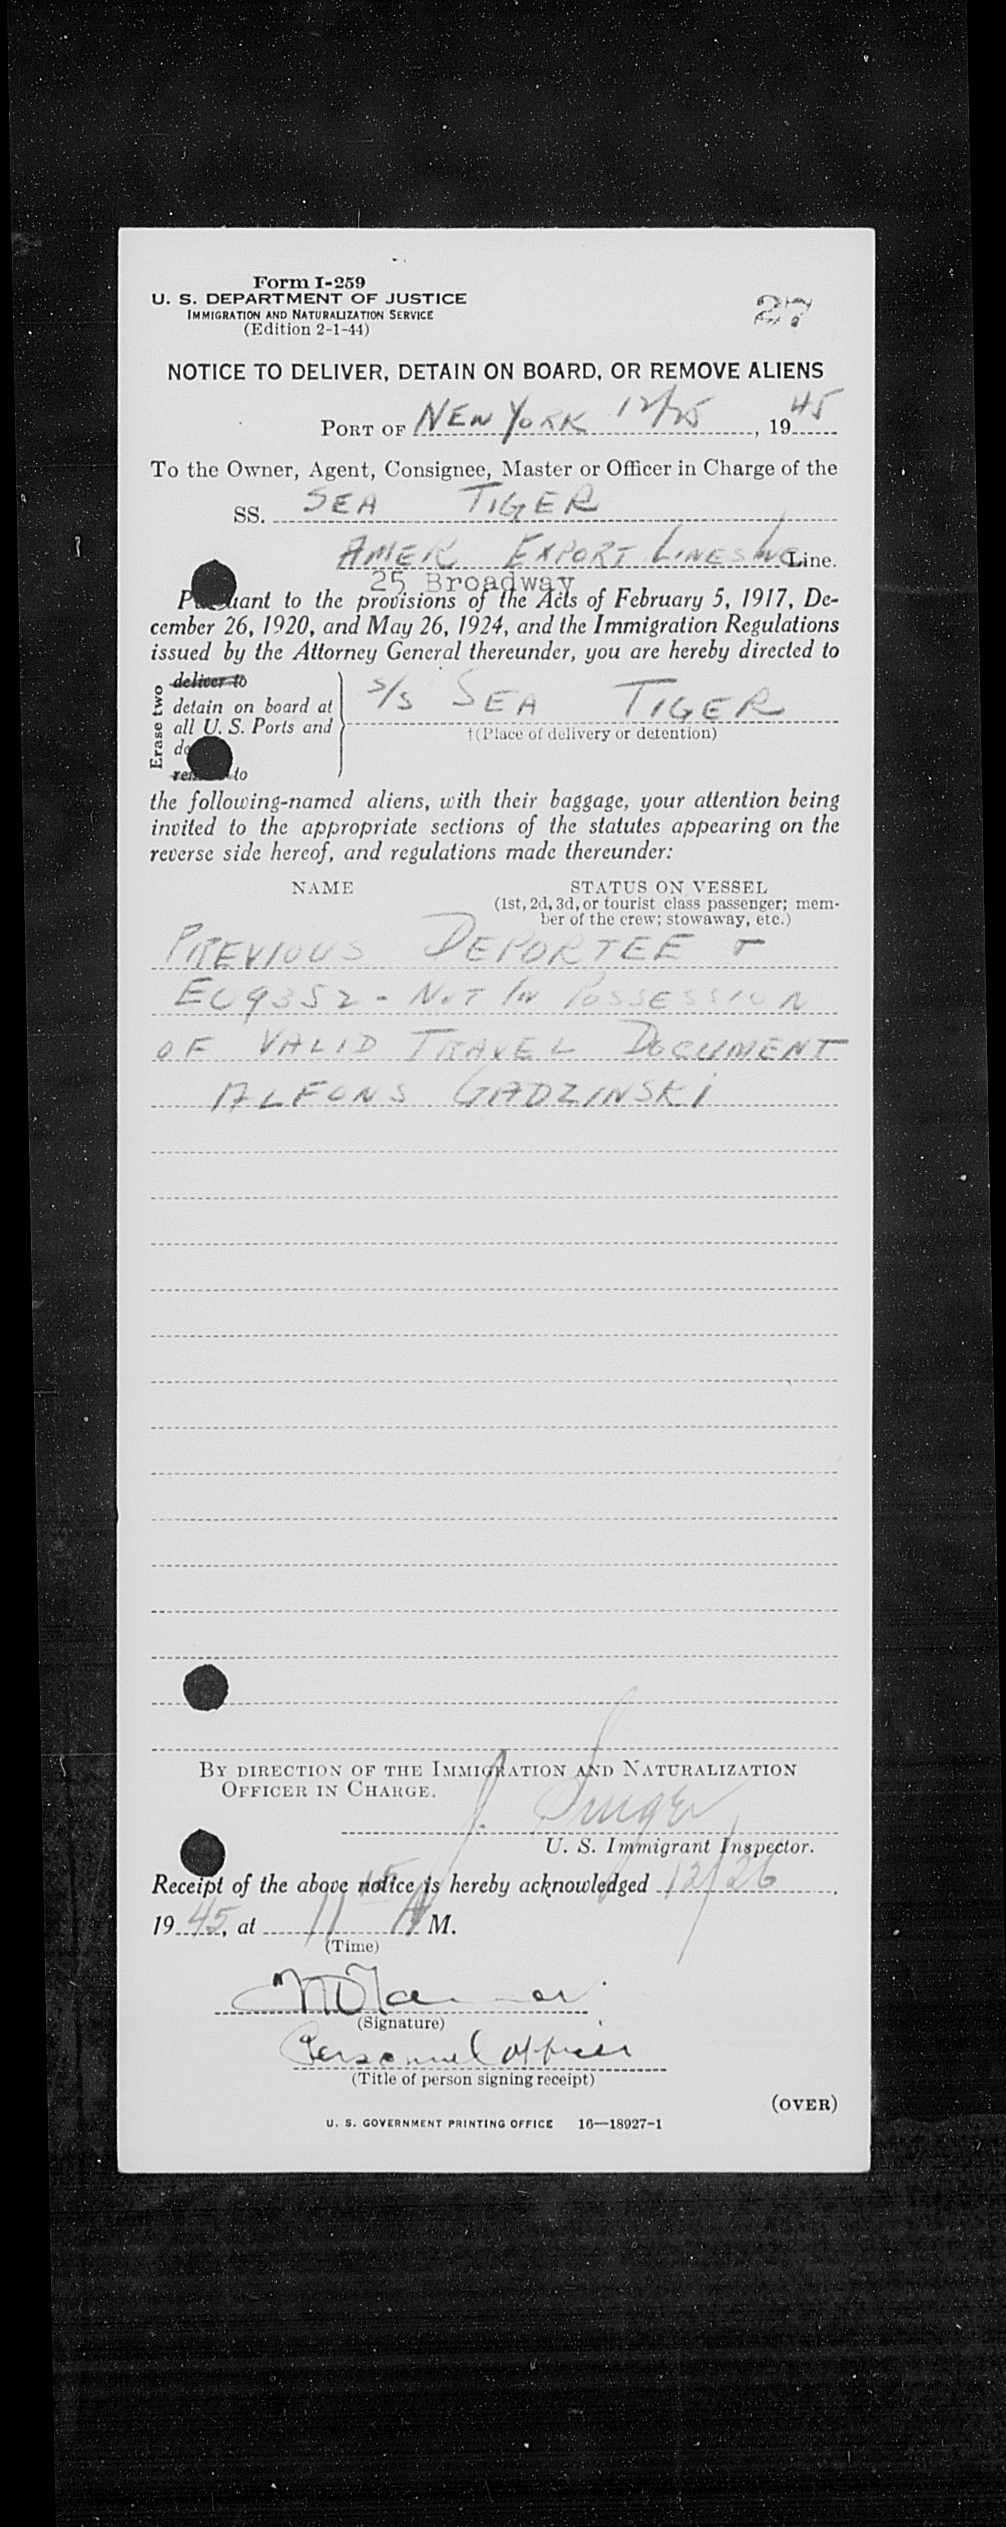 Form I-259
U. S. DEPARTMENT OF JUSTICE
IMMIGRATION AND NATURALIZATION SERVICE
(Edition 2-1-44)
27
NOTICE TO DELIVER, DETAIN ON BOARD, OR REMOVE ALIENS
PORT OF NEW YORK 12/25, 1945
To the Owner, Agent, Consignee, Master or Officer in Charge of the
SS. SEA TIGER
AMER EXPORT LINES INC Line.
25 Broadway
Pursuant to the provisions of the Acts of February 5, 1917, De-
cember 26, 1920, and May 26, 1924, and the Immigration Regulations
issued by the Attorney General thereunder, you are hereby directed to
Erase two
deliver to
detain on board at
all U. S. Ports and
remove to
S/S SEA TIGER
†(Place of delivery or detention)
the following-named aliens, with their baggage, your attention being
invited to the appropriate sections of the statutes appearing on the
reverse side hereof, and regulations made thereunder:
NAME
STATUS ON VESSEL
(1st, 2d, 3d, or tourist class passenger; mem-
ber of the crew; stowaway, etc.)
PREVIOUS DEPORTEE +
EO9352 - NOT IN POSSESSION
OF VALID TRAVEL DOCUMENT
ALFONS GADZINSKI
BY DIRECTION OF THE IMMIGRATION AND NATURALIZATION
OFFICER IN CHARGE.
J. Singer
U. S. Immigrant Inspector.
Receipt of the above notice is hereby acknowledged 12/26,
1945, at 11 15 A M.
(Time)
(Signature)
Personnel Officer
(Title of person signing receipt)
(OVER)
U. S. GOVERNMENT PRINTING OFFICE 16—18927-1